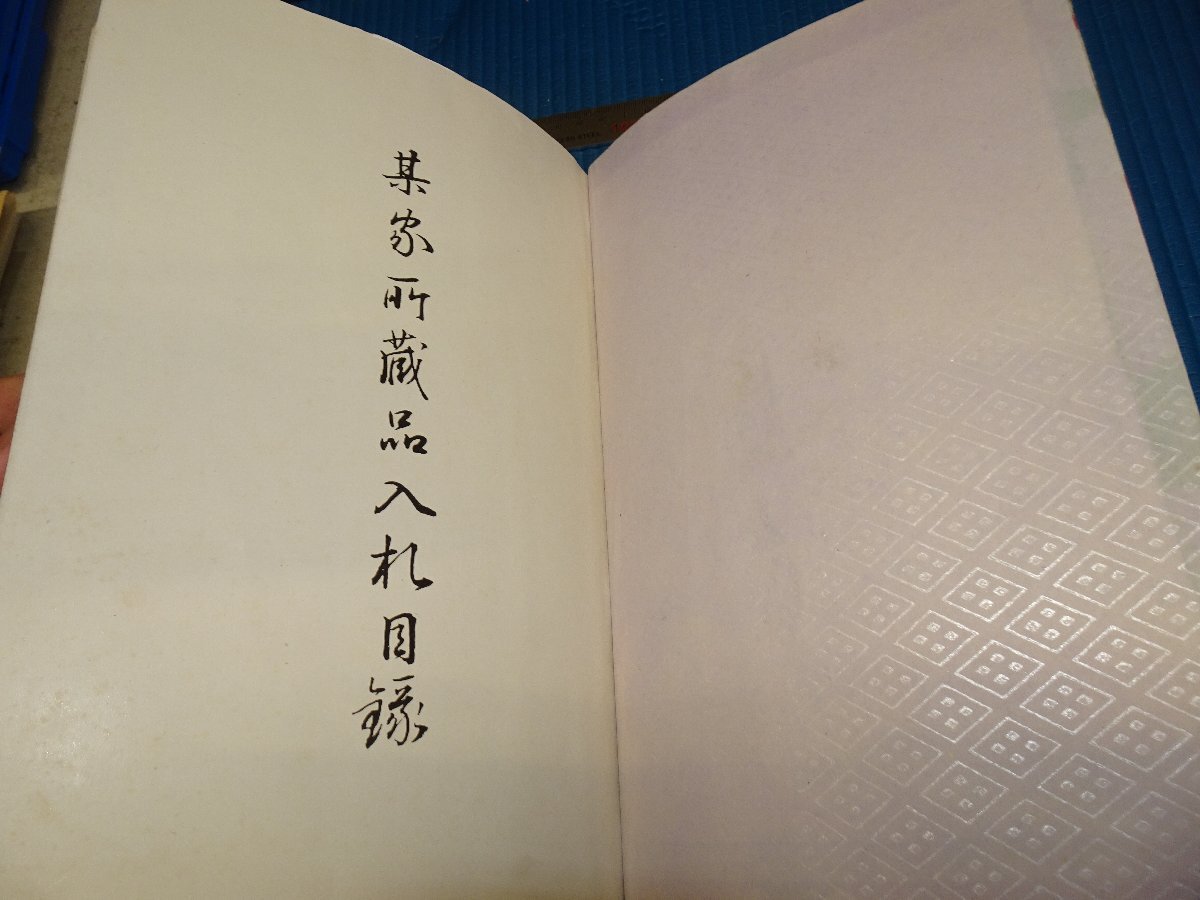 某家所蔵品入札目録